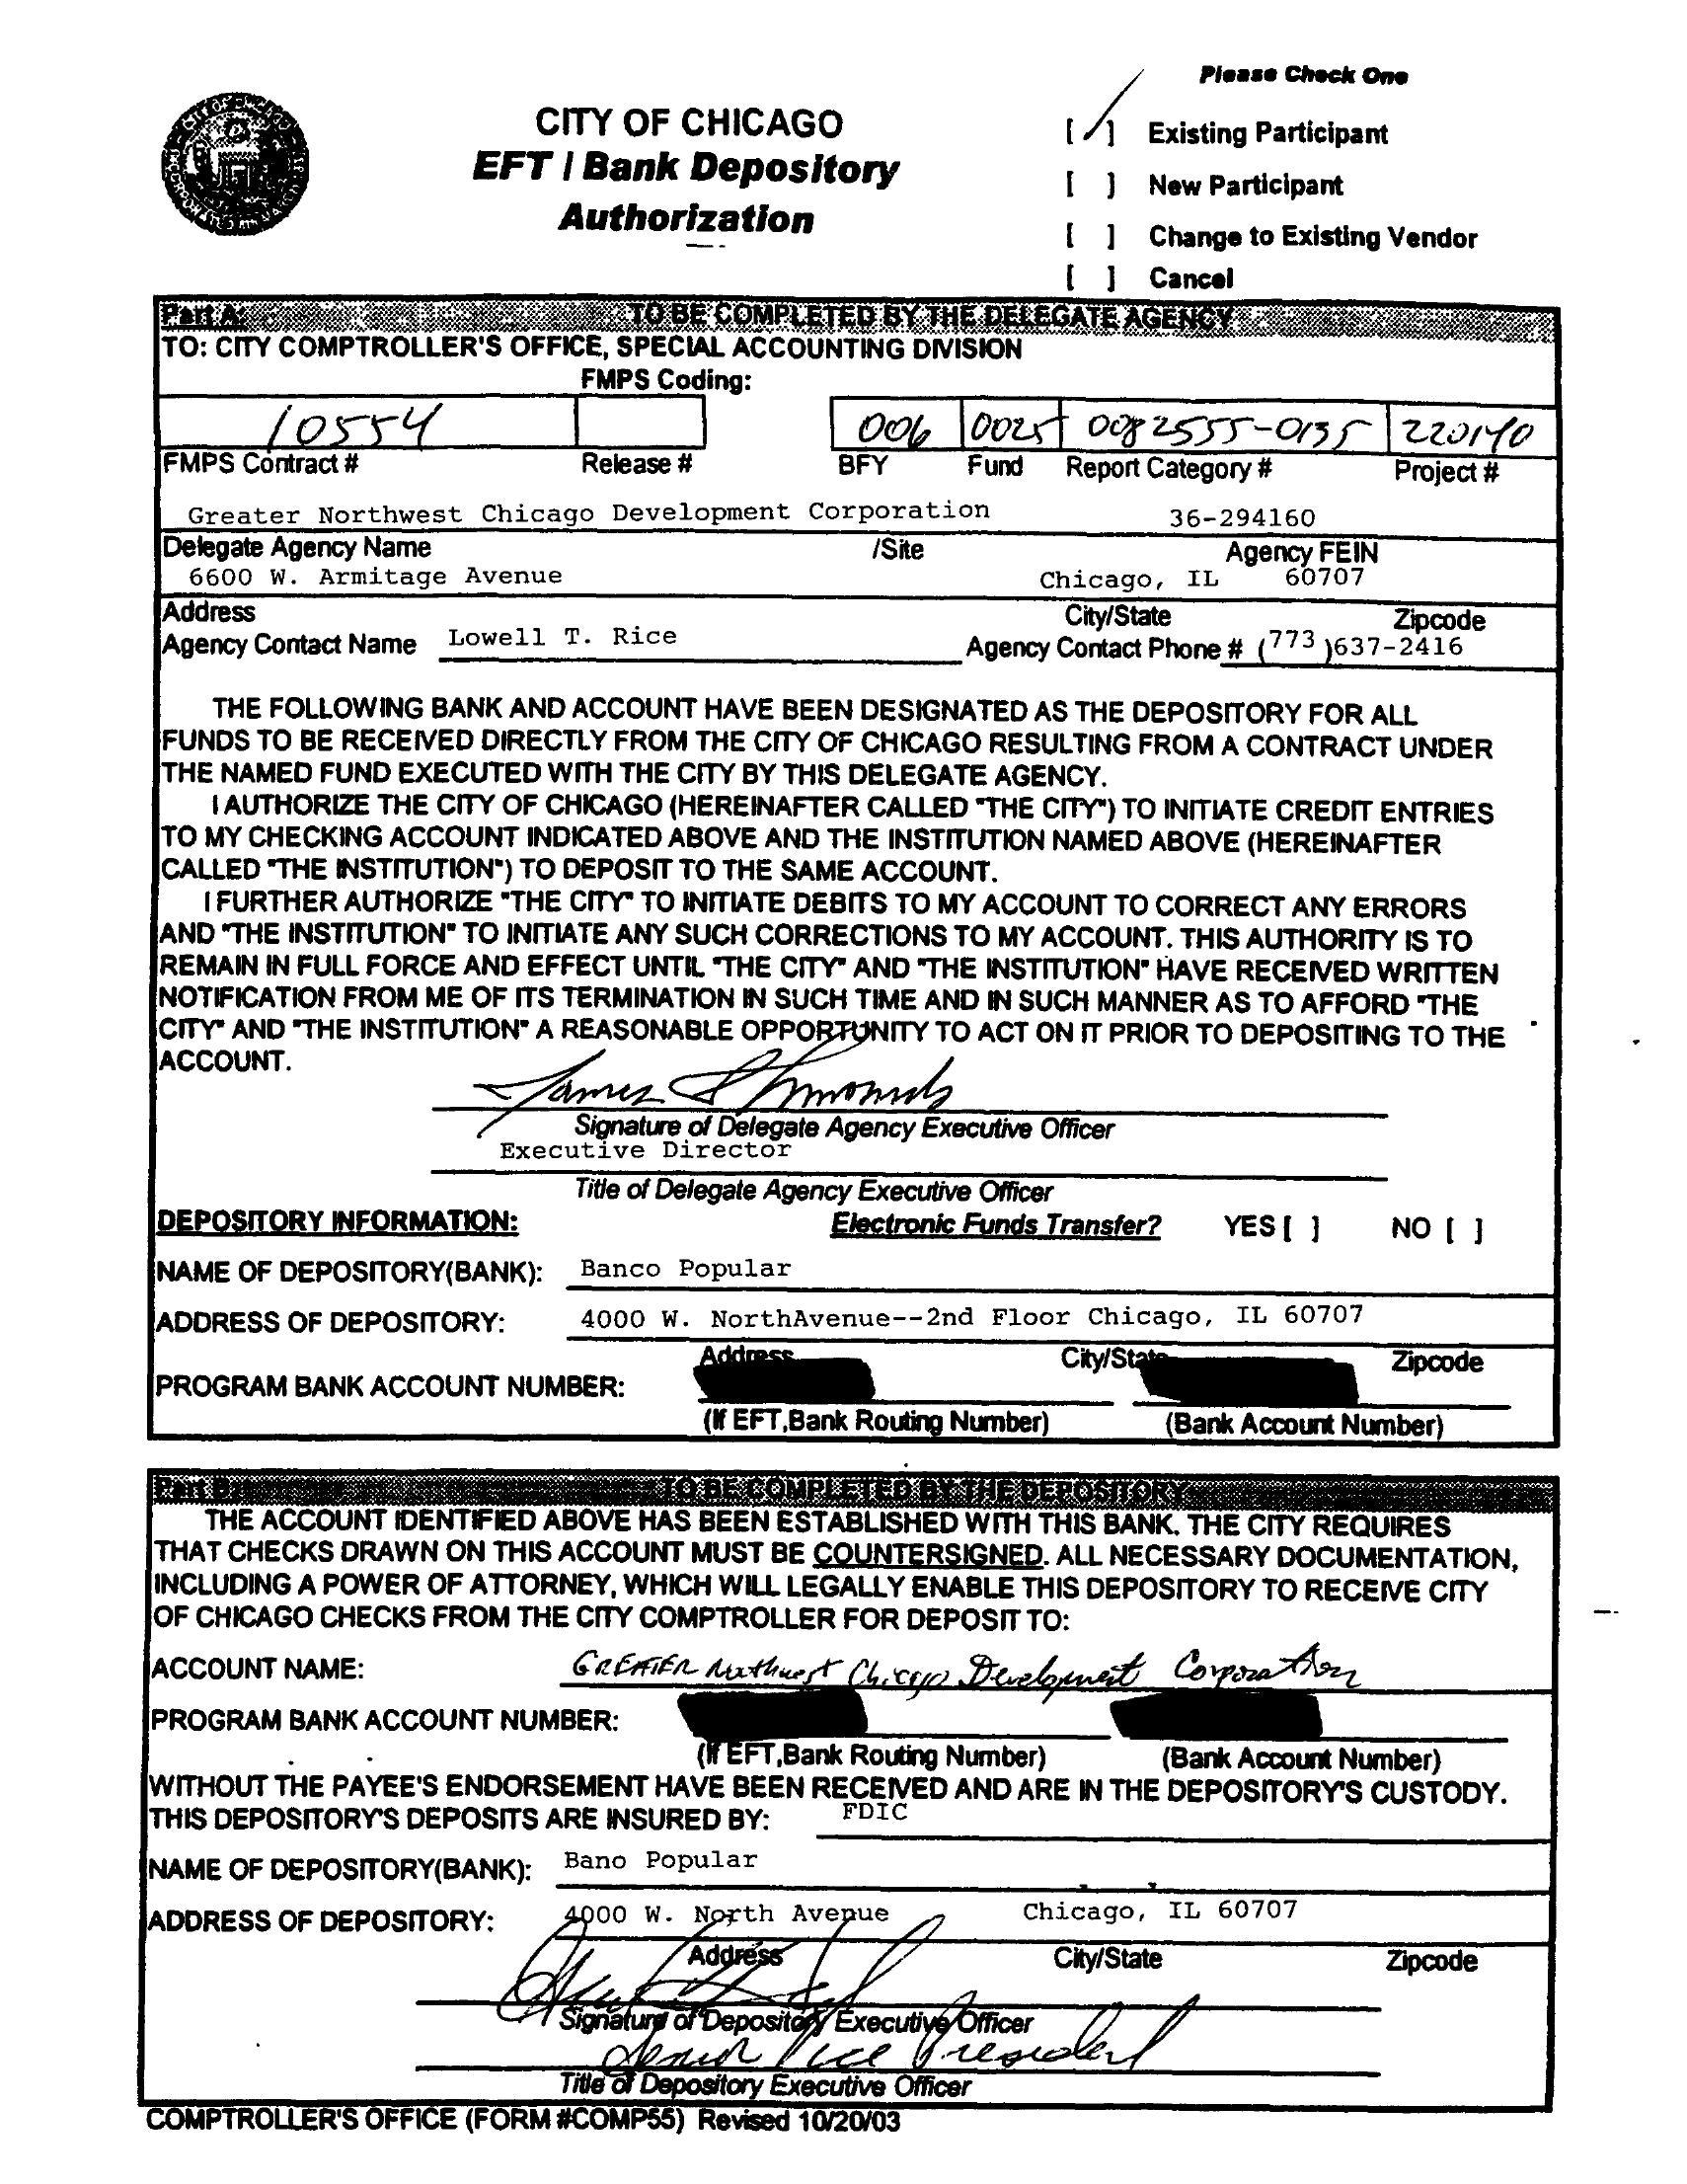 Please Check One
CITY OF CHICAGO
EFT / Bank Depository
Authorization
[ / ] Existing Participant
[ ] New Participant
[ ] Change to Existing Vendor
[ ] Cancel
Part A: TO BE COMPLETED BY THE DELEGATE AGENCY
TO: CITY COMPTROLLER'S OFFICE, SPECIAL ACCOUNTING DIVISION
FMPS Coding:
10554 006 0025 0082555-0135 220140
FMPS Contract # Release # BFY Fund Report Category # Project #
Greater Northwest Chicago Development Corporation 36-294160
Delegate Agency Name /Site Agency FEIN
6600 W. Armitage Avenue Chicago, IL 60707
Address City/State Zipcode
Agency Contact Name Lowell T. Rice Agency Contact Phone # (773)637-2416
THE FOLLOWING BANK AND ACCOUNT HAVE BEEN DESIGNATED AS THE DEPOSITORY FOR ALL
FUNDS TO BE RECEIVED DIRECTLY FROM THE CITY OF CHICAGO RESULTING FROM A CONTRACT UNDER
THE NAMED FUND EXECUTED WITH THE CITY BY THIS DELEGATE AGENCY.
I AUTHORIZE THE CITY OF CHICAGO (HEREINAFTER CALLED "THE CITY") TO INITIATE CREDIT ENTRIES
TO MY CHECKING ACCOUNT INDICATED ABOVE AND THE INSTITUTION NAMED ABOVE (HEREINAFTER
CALLED "THE INSTITUTION") TO DEPOSIT TO THE SAME ACCOUNT.
I FURTHER AUTHORIZE "THE CITY" TO INITIATE DEBITS TO MY ACCOUNT TO CORRECT ANY ERRORS
AND "THE INSTITUTION" TO INITIATE ANY SUCH CORRECTIONS TO MY ACCOUNT. THIS AUTHORITY IS TO
REMAIN IN FULL FORCE AND EFFECT UNTIL "THE CITY" AND "THE INSTITUTION" HAVE RECEIVED WRITTEN
NOTIFICATION FROM ME OF ITS TERMINATION IN SUCH TIME AND IN SUCH MANNER AS TO AFFORD "THE
CITY" AND "THE INSTITUTION" A REASONABLE OPPORTUNITY TO ACT ON IT PRIOR TO DEPOSITING TO THE
ACCOUNT.
James
Signature of Delegate Agency Executive Officer
Executive Director
Title of Delegate Agency Executive Officer
DEPOSITORY INFORMATION: Electronic Funds Transfer? YES [ ] NO [ ]
NAME OF DEPOSITORY(BANK): Banco Popular
ADDRESS OF DEPOSITORY: 4000 W. NorthAvenue--2nd Floor Chicago, IL 60707
Address City/State Zipcode
PROGRAM BANK ACCOUNT NUMBER:
(If EFT,Bank Routing Number) (Bank Account Number)
Part B: TO BE COMPLETED BY THE DEPOSITORY
THE ACCOUNT IDENTIFIED ABOVE HAS BEEN ESTABLISHED WITH THIS BANK. THE CITY REQUIRES
THAT CHECKS DRAWN ON THIS ACCOUNT MUST BE COUNTERSIGNED. ALL NECESSARY DOCUMENTATION,
INCLUDING A POWER OF ATTORNEY, WHICH WILL LEGALLY ENABLE THIS DEPOSITORY TO RECEIVE CITY
OF CHICAGO CHECKS FROM THE CITY COMPTROLLER FOR DEPOSIT TO:
ACCOUNT NAME: GREATER Northwest Chicago Development Corporation
PROGRAM BANK ACCOUNT NUMBER:
(If EFT,Bank Routing Number) (Bank Account Number)
WITHOUT THE PAYEE'S ENDORSEMENT HAVE BEEN RECEIVED AND ARE IN THE DEPOSITORY'S CUSTODY.
THIS DEPOSITORY'S DEPOSITS ARE INSURED BY: FDIC
NAME OF DEPOSITORY(BANK): Bano Popular
ADDRESS OF DEPOSITORY: 4000 W. North Avenue Chicago, IL 60707
Address City/State Zipcode
Signature of Depository Executive Officer
Senior Vice President
Title of Depository Executive Officer
COMPTROLLER'S OFFICE (FORM #COMP55) Revised 10/20/03